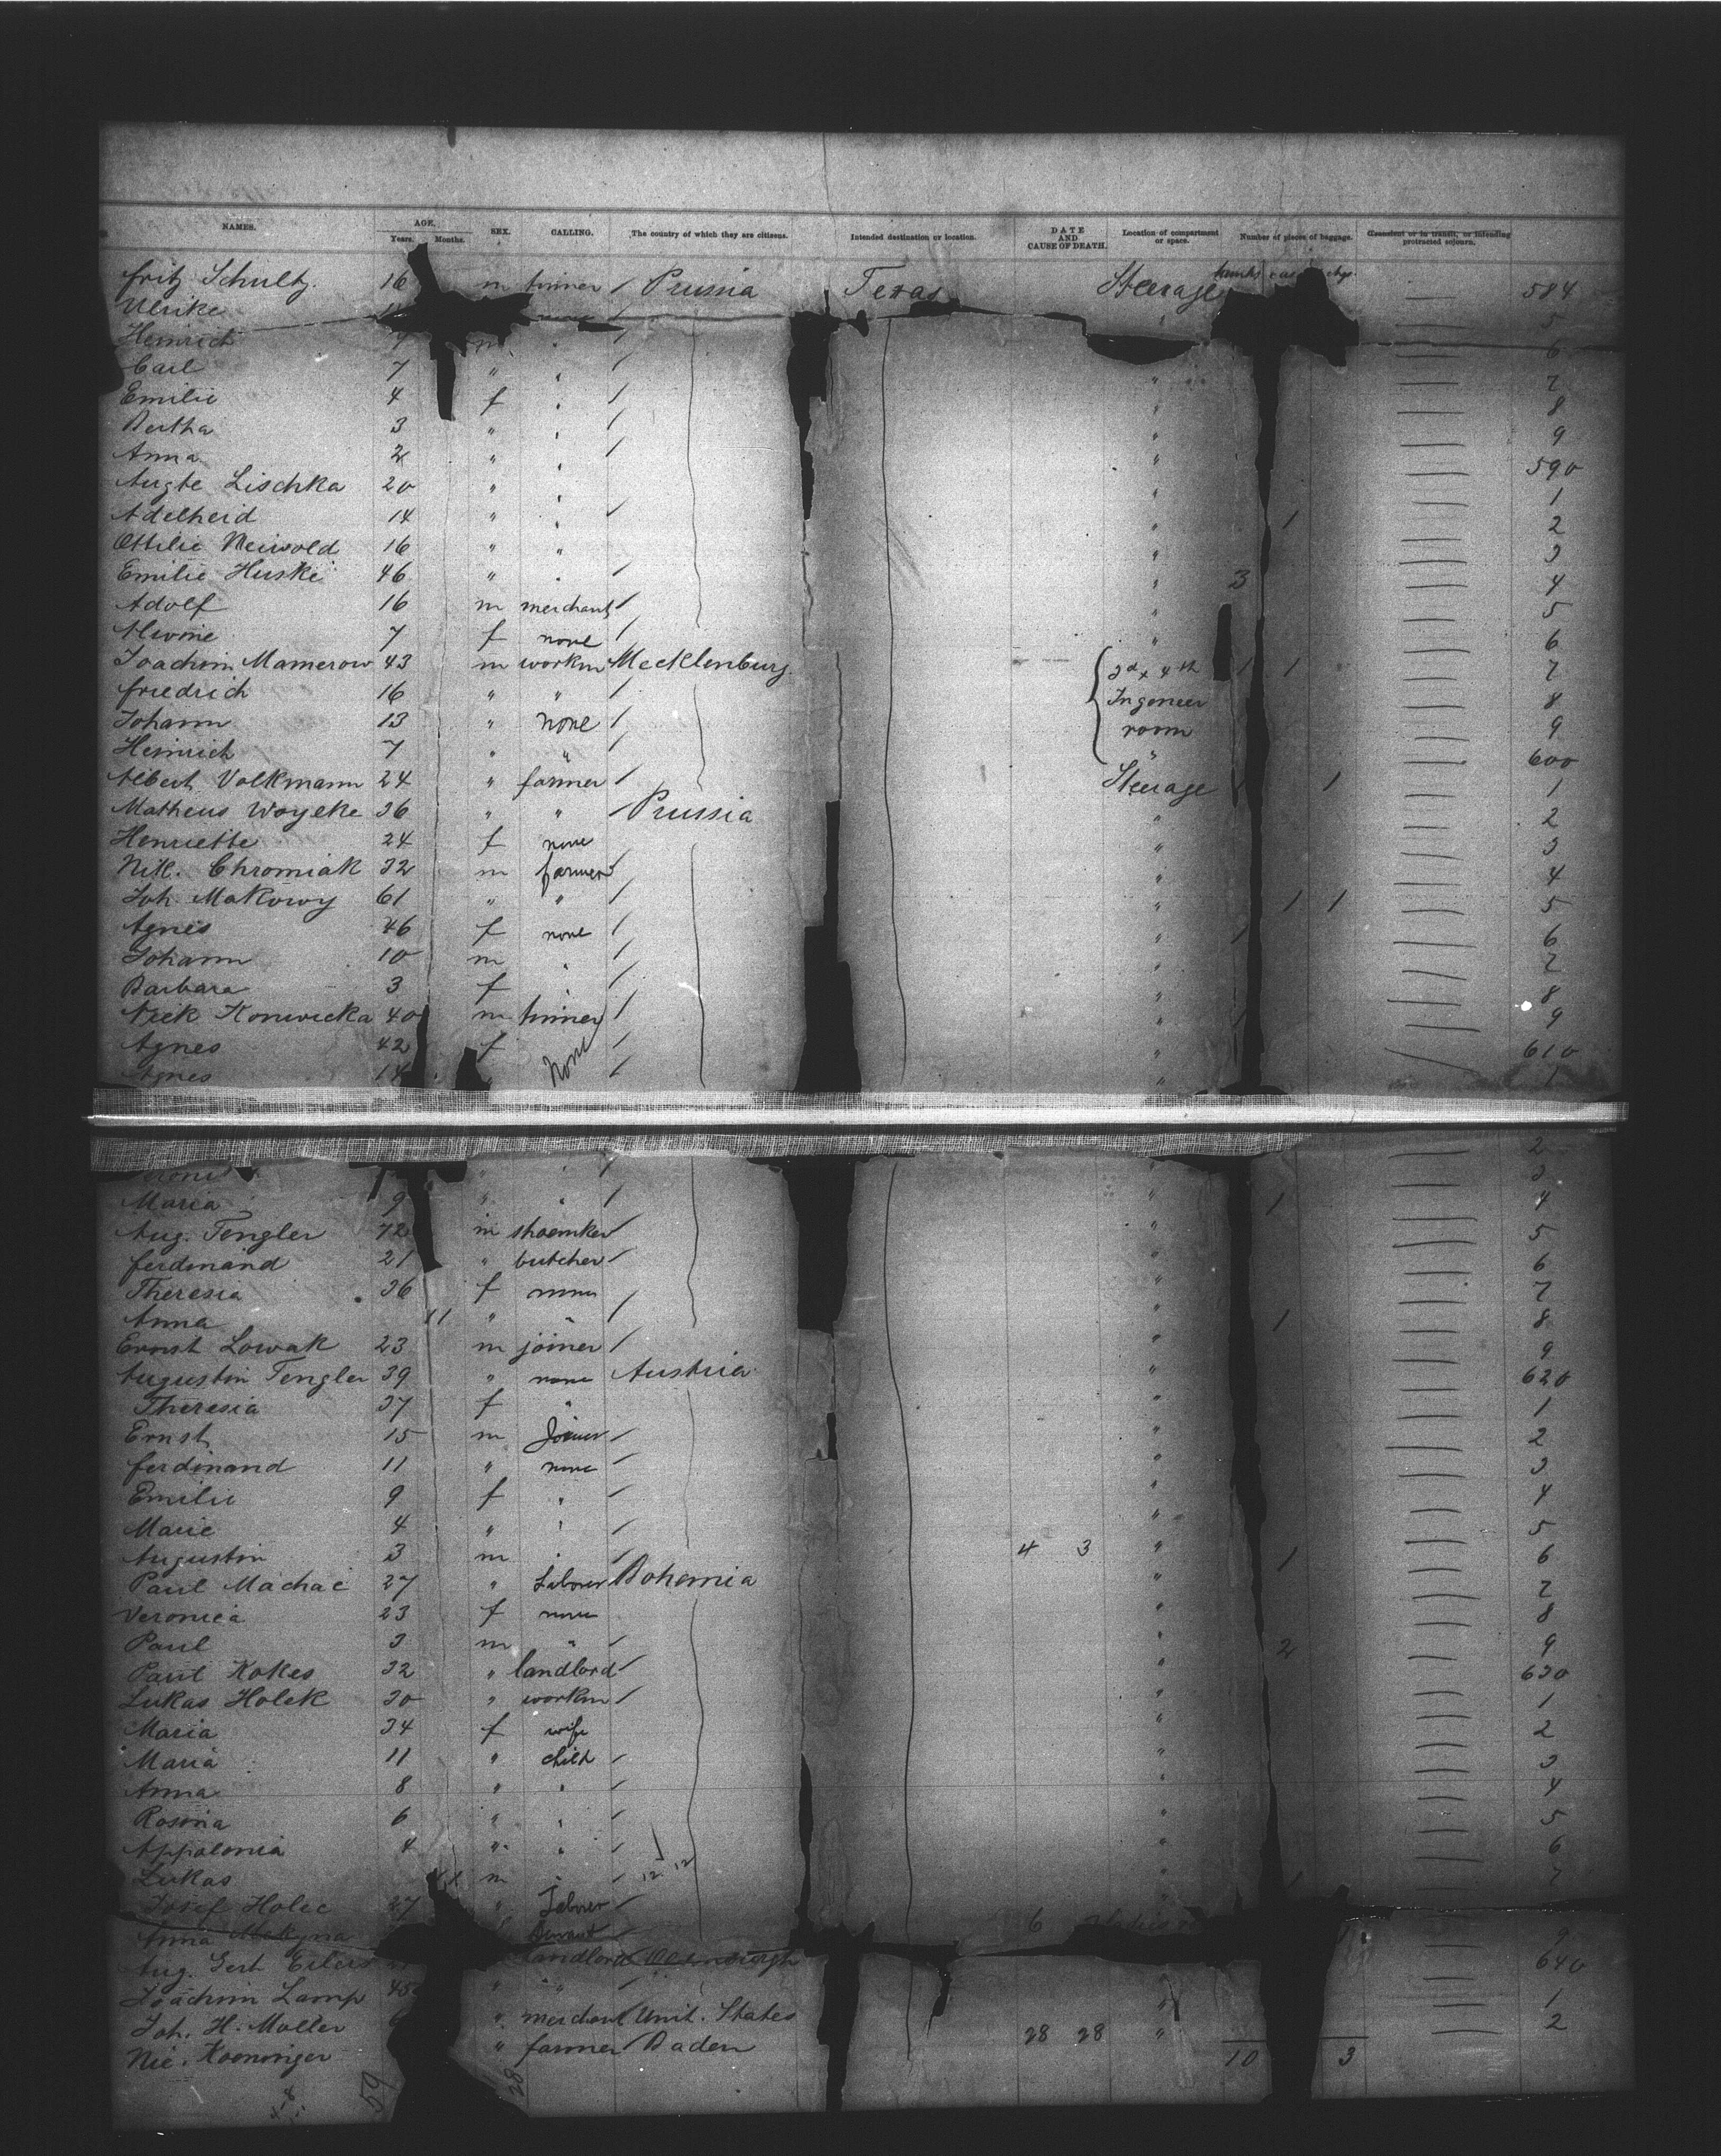 NAMES. AGE. Years. Months. SEX. CALLING. The country of which they are citizens. Intended destination or location. DATE AND CAUSE OF DEATH. Location of compartment or space. Number of pieces of baggage. Transient or in transit, or intending protracted sojourn.
Fritz Schultz 16 m tinner / Prussia Texas Steerage 584
Ulrike / 5
Heinrich 9 m " / 6
Carl 7 " " / " 7
Emilie 4 f " / " 8
Bertha 3 " " / " 9
Anna 2 " " / " 590
Augte Lischka 20 " " " 1
Adelheid 14 " " / " 1 2
Ottilie Neiwold 16 " " " 3
Emilie Huske 46 " " / " 3 4
Adolf 16 m merchant / " 5
Alwine 7 f none / " 6
Joachim Mamerow 43 m workm Mecklenburg 3d & 4th 1 1 7
Friedrich 16 " " / Ingeneer 8
Johann 13 " none / room 9
Heinrich 7 " " / " 600
Albert Volkmann 24 " farmer / Steerage 1 1 1
Matheus Woyeke 36 " " / Prussia " 2
Henriette 24 f none " 3
Nik. Chromiak 32 m farmer / " 4
Joh. Makowy 61 " " / " 1 1 5
Agnes 46 f none / " 6
Johann 10 m " / " 7
Barbara 3 f " / " 8
Nick Konwicka 40 m tinner / " 9
Agnes 42 f None / " 610
Agnes 14 / " 1
2
" " / " 3
Maria 9 " " / " 1 4
Aug. Tengler 72 m shoemker / " 5
Ferdinand 21 " butcher / " 6
Theresia 36 f none " 7
Anna 11 " " / " 1 8
Ernst Lowak 23 m joiner / " 9
Augustin Tengler 39 " none Austria " 620
Theresia 37 f " " 1
Ernst 15 m Joiner / " 2
Ferdinand 11 " none / " 3
Emilie 9 f " / " 4
Marie 4 " " / " 5
Augustin 3 m " / 4 3 " 1 6
Paul Machac 27 " Laborer Bohemia " 7
Veronica 23 f none " 8
Paul 3 m " / " 2 9
Paul Kokes 32 " landlord / " 630
Lukas Holek 30 " workm / " 1
Maria 34 f wife " 2
Maria 11 " child / " 3
Anna 8 " " / " 4
Rosina 6 " " / " 5
Appolonia 4 " " / " 6
Lukas m " 12 12 7
Josef Holec 27 " Laborer / "
Anna Servant / 6 9
Aug. Gert Eilers landlord 640
Joachim Lamp 45 " " / " 1
Joh. H. Moller " merchant Unit. States " 2
Nic. Koenninger " farmer / Baden 28 28 " 10 3
59 28